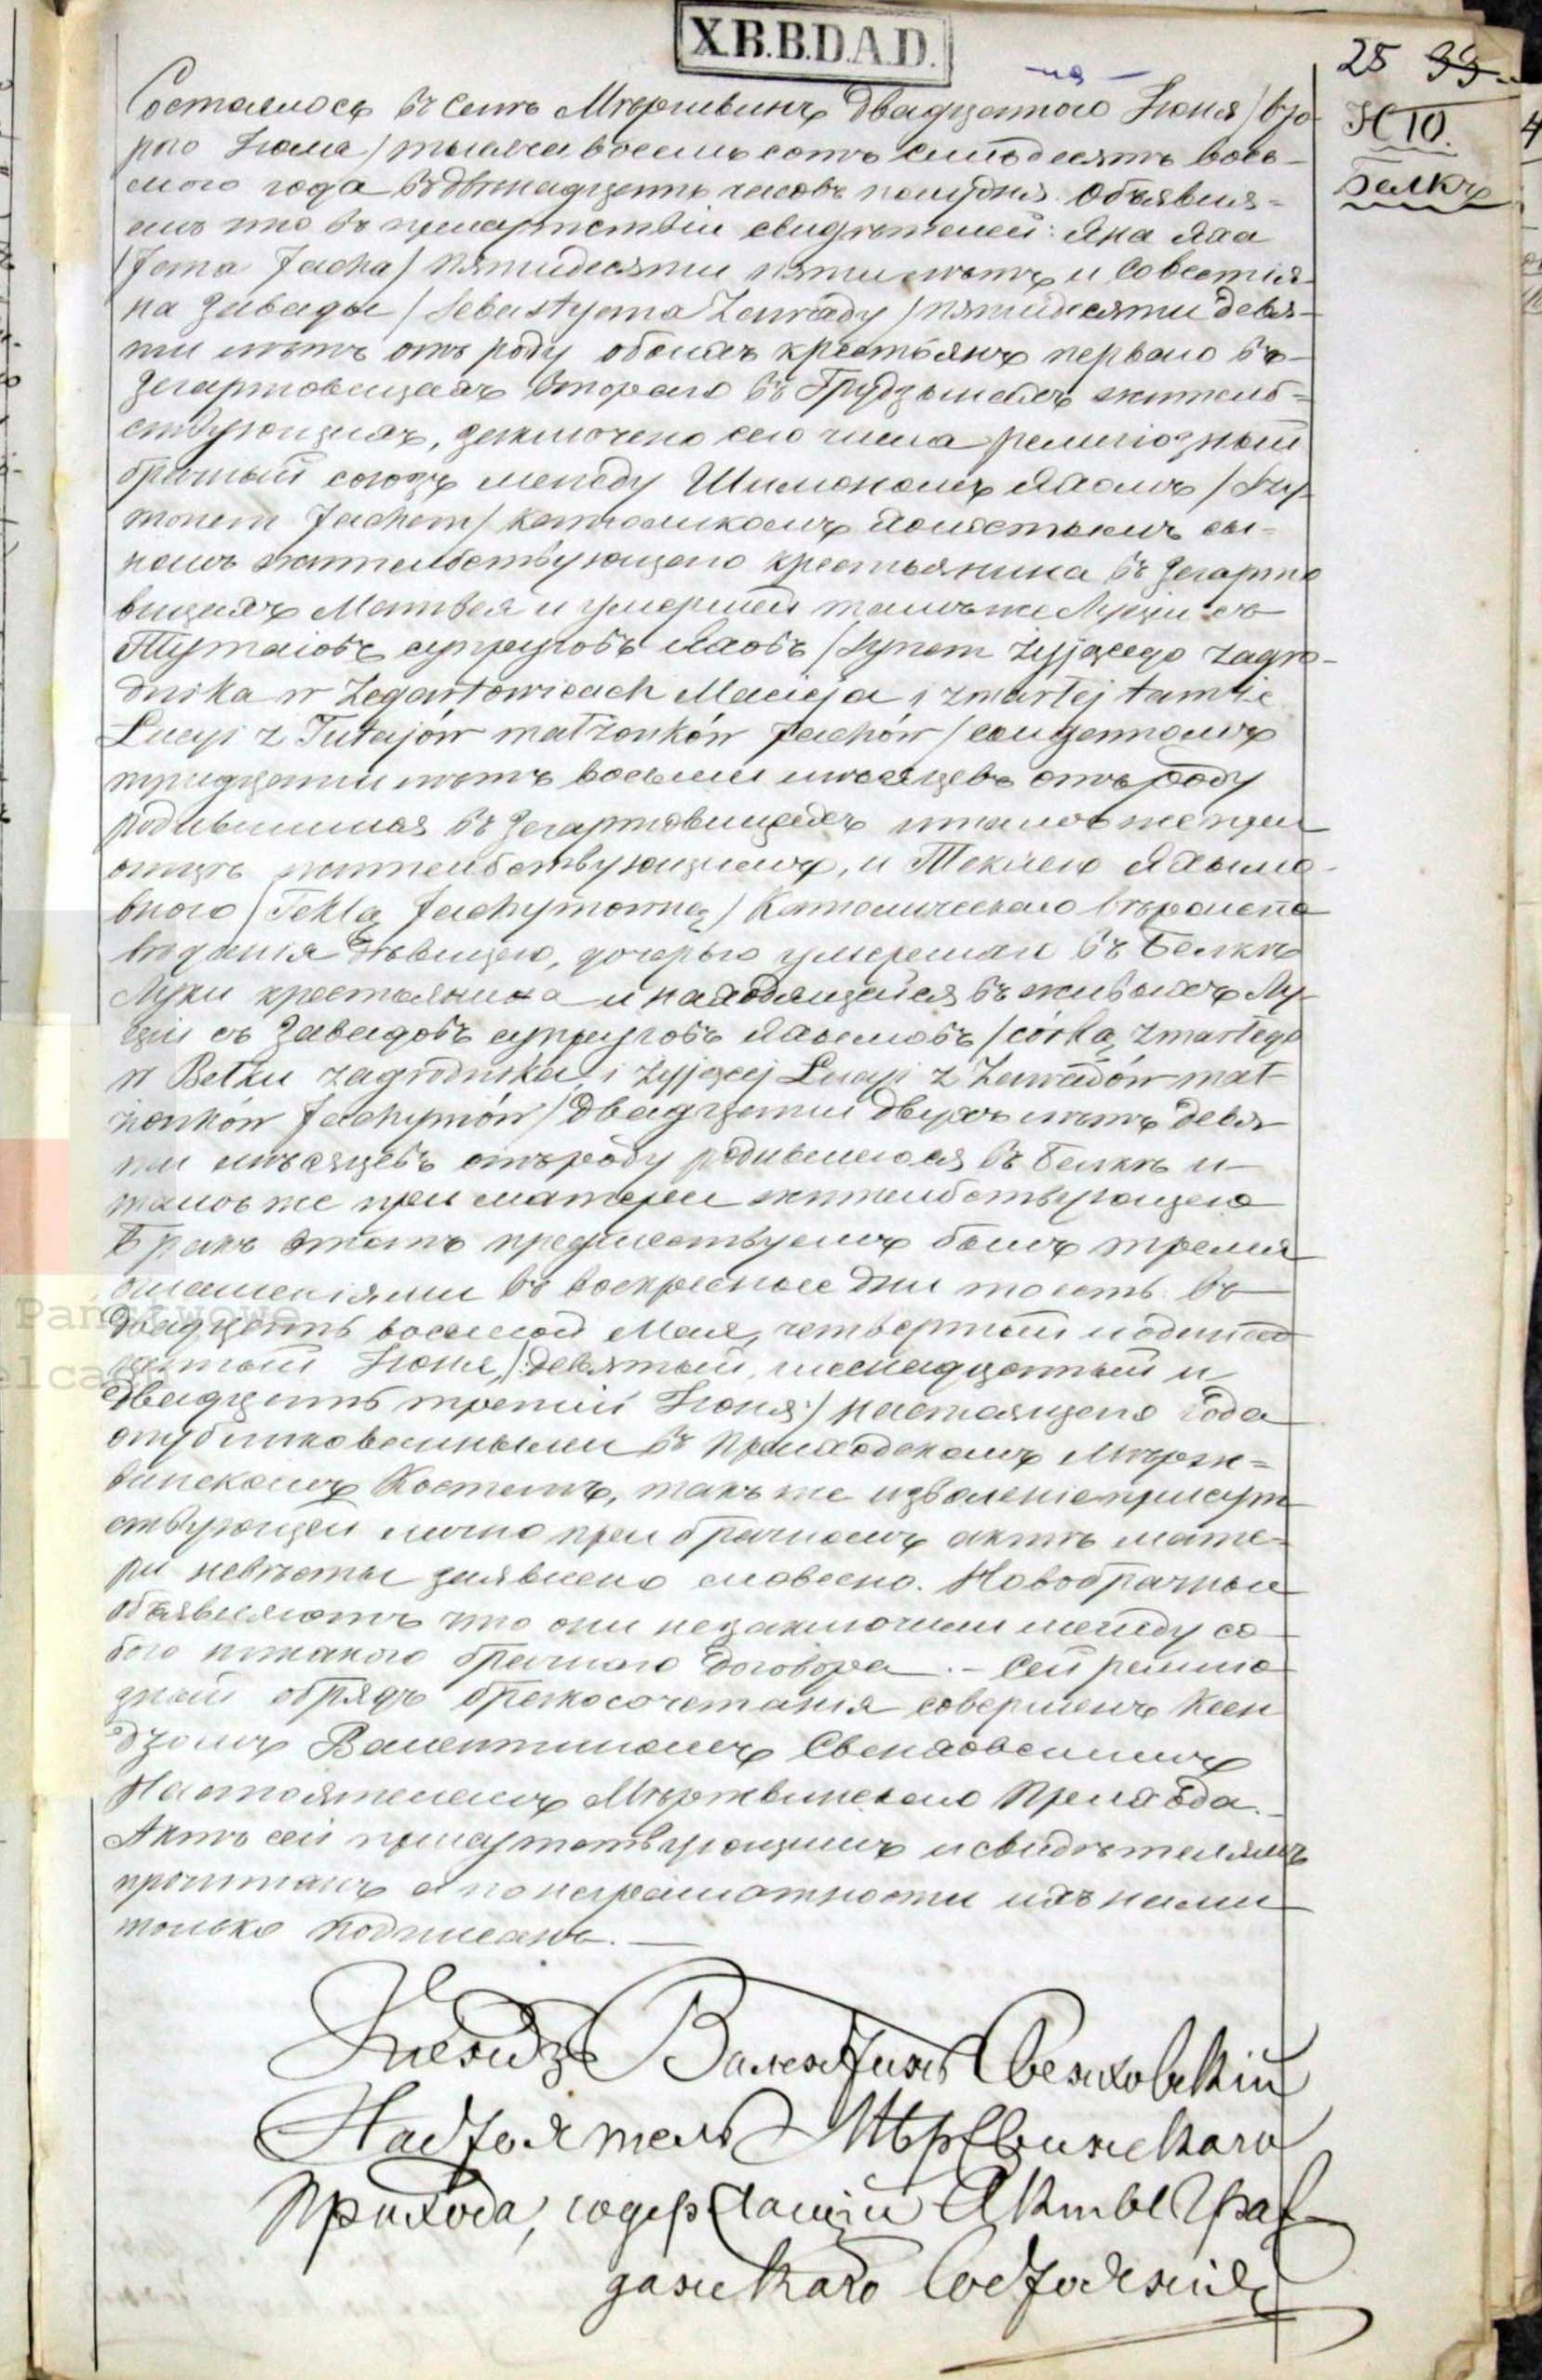 X.B.B.D.A.D.
25 99.
N 10.
Белкъ
Состоялось въ селѣ Мѣржвинъ двадцатаго Іюня / вто-
раго Іюля / тысяча восемь сотъ семьдесятъ вось-
маго года въ двѣнадцать часовъ полудня. Объявля-
емъ что въ присутствіи свидѣтелей: Яна Яха
/ Jana Jacha / пятидесяти пяти лѣтъ и Севестія-
на Завады / Sebastyana Zawady / пятидесяти девя-
ти лѣтъ отъ роду обоихъ крестьянъ перваго въ
Зегартовицахъ втораго въ Грудзынахъ житель-
ствующихъ, заключено сего числа религіозный
брачный союзъ между Шимономъ Яхомъ / Szy-
monem Jachem / католикомъ холостымъ сы-
номъ жительствующаго крестьянина въ Зегарто
вицахъ Матвея и умершей тамъ же Луціи съ
Тутаіовъ супруговъ Яховъ / Synem żyjącego zagro-
dnika w Zegartowicach Macieja i zmarłej tamże
Łucyi z Tutajów małżonków Jachów / солдатомъ
тридцати лѣтъ восьми мѣсяцевъ отъ роду
родившимся въ Зегартовицахъ и тамъ же при
отцѣ жительствующимъ, и Теклею Яхымо-
вною / Teklą Jachymowną / Католическаго вѣроиспо
вѣданія дѣвицею, дочерью умершаго въ Белкѣ
Луки крестьянина и находящейся въ живыхъ Лу-
ціи съ Завадовъ супруговъ Яхымовъ / córką zmarłego
w Bełku zagrodnika i żyjącej Łucyi z Zawadów mał-
żonków Jachymów / двадцати двухъ лѣтъ девя-
ти мѣсяцевъ отъ роду родившеюся въ Белкѣ и
тамъ же при матери жительствующею
Бракъ этотъ предшествуемъ былъ тремя
оглашеніями въ воскресные дни то есть въ
двадцать восьмой Мая, четвертый и одинад
цатый Іюня, / девятый, шеснадцатый и
двадцать третій Іюня / настоящего года
опубликованными въ Приходскомъ Мѣрж-
винскомъ Костелѣ, такъ же изволеніе присут
ствующей лично при брачномъ актѣ мате-
ри невѣсты заявлено словесно. Новобрачные
объявляютъ что они не заключили между со
бою никакого брачного договора. – Сей религіо
зный обрядъ бракосочетанія совершенъ Ксен
дзомъ Валентиномъ Свенховскимъ
Настоятелемъ Мѣржвинскаго Прихода. –
Актъ сей присутствующимъ и свидѣтелямъ
прочитанъ а по неграмотности ихъ нами
только подписанъ. –
Ксендзъ Валентинъ Свенховскій
Настоятель Мѣржвинскаго
Прихода, содержащій Акты Граж
данскаго Состоянія